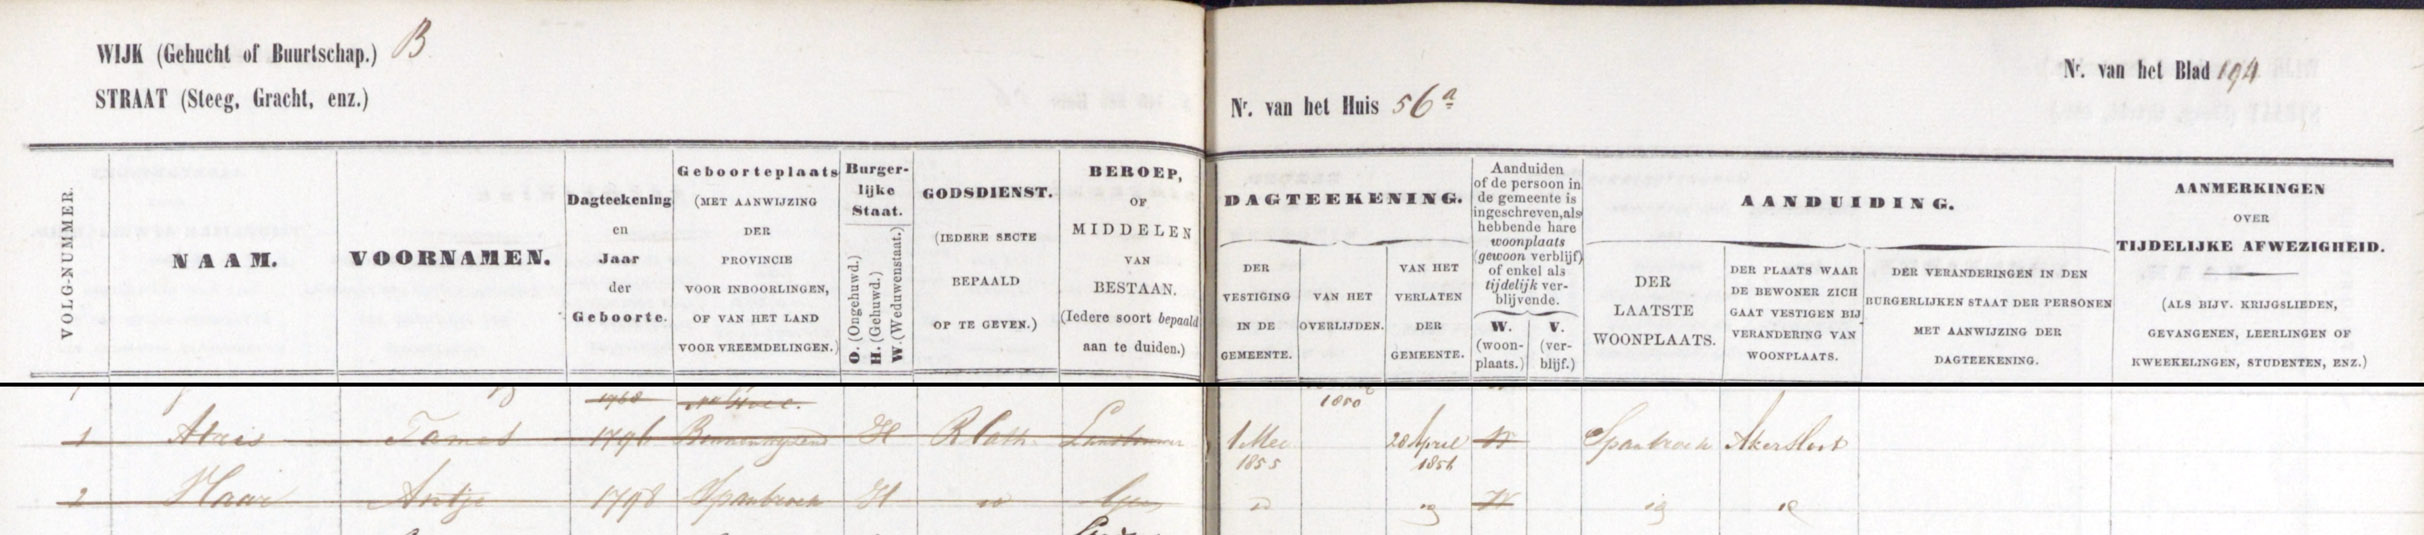 WIJK (Gehucht of Buurtschap.) B
STRAAT (Steeg, Gracht, enz.)
Nr. van het Huis 56a
Nr. van het Blad 194
VOLG-NUMMER.
NAAM.
VOORNAMEN.
Dagteekening
en
Jaar
der
Geboorte.
Geboorteplaats
(MET AANWIJZING
DER
PROVINCIE
VOOR INBOORLINGEN,
OF VAN HET LAND
VOOR VREEMDELINGEN.)
Burger-
lijke
Staat.
O. (Ongehuwd.)
H. (Gehuwd.)
W. (Weduwenstaat.)
GODSDIENST.
(IEDERE SECTE
BEPAALD
OP TE GEVEN.)
BEROEP,
OF
MIDDELEN
VAN
BESTAAN.
(Iedere soort bepaald
aan te duiden.)
DAGTEEKENING.
DER
VESTIGING
IN DE
GEMEENTE.
VAN HET
OVERLIJDEN.
VAN HET
VERLATEN
DER
GEMEENTE.
Aanduiden
of de persoon in
de gemeente is
ingeschreven, als
hebbende hare
woonplaats
(gewoon verblijf)
of enkel als
tijdelijk ver-
blijvende.
W.
(woon-
plaats.)
V.
(ver-
blijf.)
AANDUIDING.
DER
LAATSTE
WOONPLAATS.
DER PLAATS WAAR
DE BEWONER ZICH
GAAT VESTIGEN BIJ
VERANDERING VAN
WOONPLAATS.
DER VERANDERINGEN IN DEN
BURGERLIJKEN STAAT DER PERSONEN
MET AANWIJZING DER
DAGTEEKENING.
AANMERKINGEN
OVER
TIJDELIJKE AFWEZIGHEID.
(ALS BIJV. KRIJGSLIEDEN,
GEVANGENEN, LEERLINGEN OF
KWEEKELINGEN, STUDENTEN, ENZ.)
1768
1850
1 Tames 1796 H R Cath Landbouwer 1 Mei 1855 20 April 1856 W Spanbroek Akersloot
2 Haar Antje 1798 Spanbroek H id Geen id id W id id